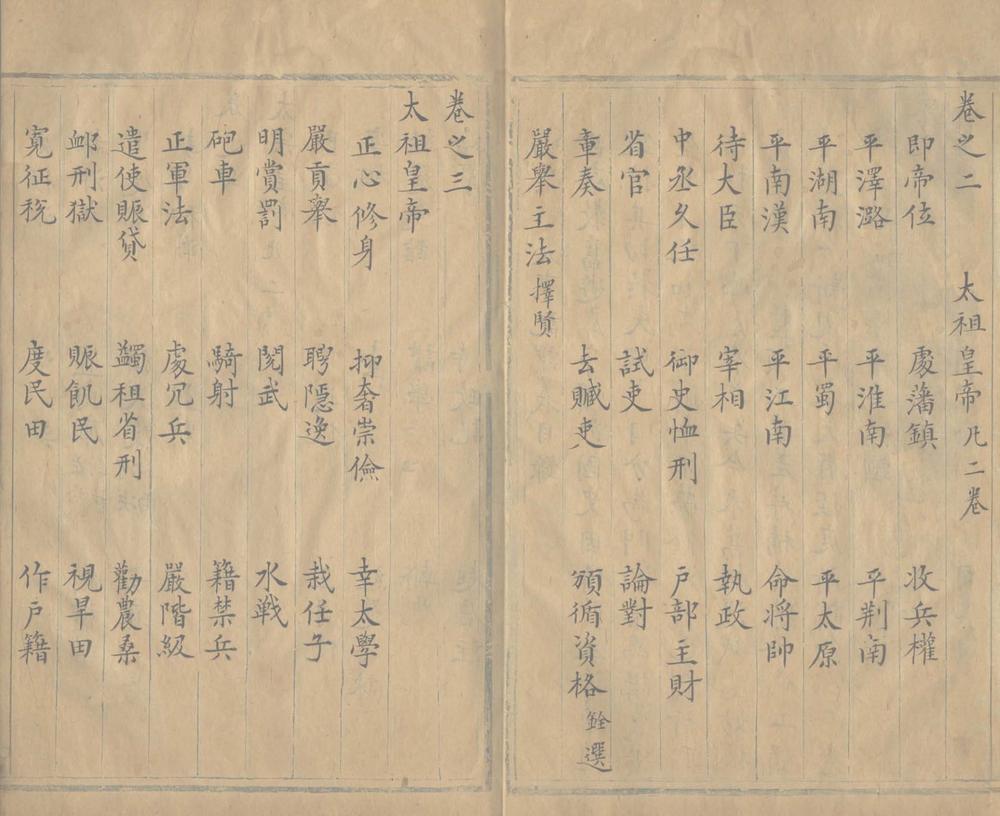 卷之二　太祖皇帝　凡二卷
即帝位　處藩鎮　收兵權
平澤潞　平淮南　平荆南
平湖南　平蜀　平太原
平南漢　平江南　命將帥
待大臣　宰相　執政
中丞久任　御史恤刑　户部主財
省官　試吏　論對
章奏　去贓吏　頒循資格　銓選
嚴舉主法　擇賢
卷之三
太祖皇帝
正心修身　抑奢崇儉　幸太學
嚴貢舉　聘隱逸　裁任子
明賞罰　閱武　水戰
砲車　騎射　籍禁兵
正軍法　處冗兵　嚴階級
遣使賑貸　蠲租省刑　勸農桑
䘏刑獄　賑飢民　視旱田
寛征稅　度民田　作户籍